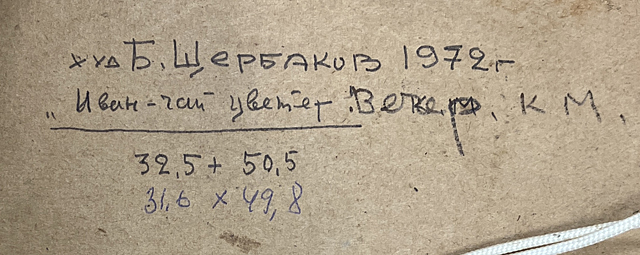 худ Б. Щербаков 1972г
„Иван-чай цветет. Вечер. К М.
32,5 + 50,5
31,6 × 49,8